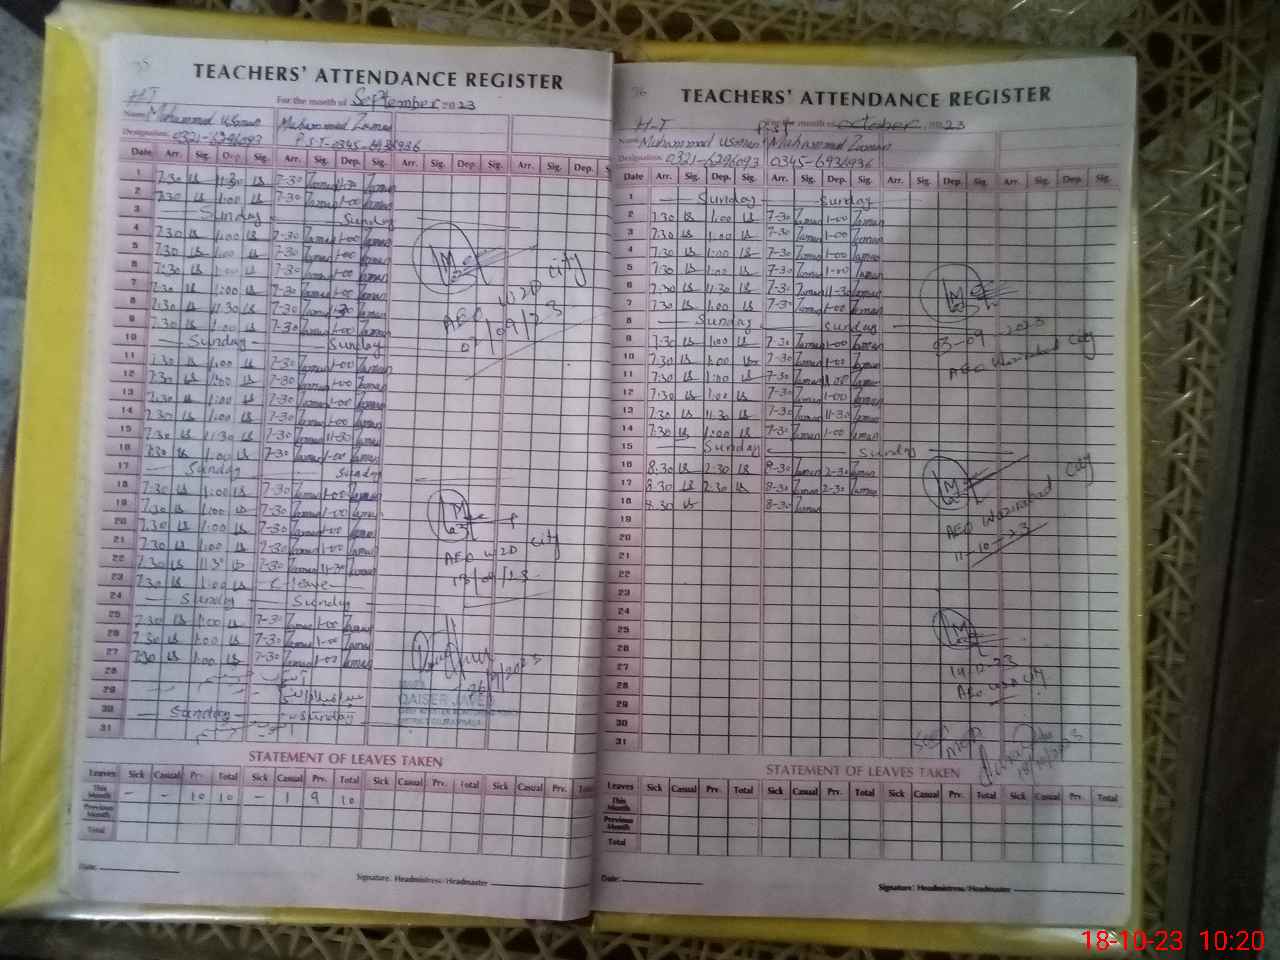 TEACHERS' ATTENDANCE REGISTER
For the month of September 2023
H.T
Name Muhammad Usman Muhammad Zaman
Designation: 0321-6296093 P.S.T-0345-6936936
Date Arr. Sig. Dep. Sig. Arr. Sig. Dep. Sig. Arr. Sig. Dep. Sig. Arr. Sig. Dep.
1 7.30 11.30 7-30 Zaman 11-30 Zaman
2 7.30 1.00 7-30 Zaman 1-00 Zaman
3 Sunday Sunday
4 7.30 1.00 7-30 Zaman 1-00 Zaman
5 7.30 1.00 7-30 Zaman 1-00 Zaman
6 7.30 1.00 7-30 Zaman 1-00 Zaman
7 7.30 1.00 7-30 Zaman 1-00 Zaman
8 7.30 11.30 7-30 Zaman Zaman
9 7.30 1.00 7-30 Zaman 1-00 Zaman
10 Sunday Sunday
11 7.30 1.00 7-30 Zaman 1-00 Zaman
12 7.30 1.00 7-30 Zaman 1-00 Zaman
13 7.30 1.00 7-30 Zaman 1-00 Zaman
14 7.30 1.00 7-30 Zaman 1-00 Zaman
15 7.30 11.30 7-30 Zaman 11-30 Zaman
16 7.30 1.00 7-30 Zaman 1-00 Zaman
17 Sunday Sunday
18 7.30 1.00 7-30 Zaman 1-00 Zaman
19 7.30 1.00 7-30 Zaman 1-00 Zaman
20 7.30 1.00 7-30 Zaman 1-00 Zaman
21 7.30 1.00 7-30 Zaman 1-00 Zaman
22 7.30 11.30 7-30 Zaman 11-30 Zaman
23 7.30 1.00 C-leave
24 Sunday Sunday
25 7.30 1.00 7-30 Zaman 1-00 Zaman
26 7.30 1.00 7-30 Zaman 1-00 Zaman
27 7.30 1.00 7-30 Zaman 1-00 Zaman
28
29
30 Sunday Sunday
31
AEO WZD city
/09/23
AEO WZD city
/09/23
/2023
QAISER JAVED
STATEMENT OF LEAVES TAKEN
Leaves Sick Casual Prv. Total Sick Casual Prv. Total Sick Casual Prv. Total Sick Casual Prv.
This Month - - 10 10 - 1 9 10
Previous Month
Total
Date:
Signature: Headmistress/Headmaster
36
TEACHERS' ATTENDANCE REGISTER
H-T P.S.T For the month of October, 2023
Name Muhammad Usman Muhammad Zaman
Designation: 0321-6296093 0345-6936936
Date Arr. Sig. Dep. Sig. Arr. Sig. Dep. Sig. Arr. Sig. Dep. Sig. Arr. Sig. Dep. Sig.
1 Sunday Sunday
2 7.30 1.00 7-30 Zaman 1-00 Zaman
3 7.30 1.00 7-30 Zaman 1-00 Zaman
4 7.30 1.00 7-30 Zaman 1-00 Zaman
5 7.30 1.00 7-30 Zaman 1-00 Zaman
6 7.30 11.30 7-30 Zaman 11-30 Zaman
7 7.30 1.00 7-30 Zaman 1-00 Zaman
8 Sunday Sunday
9 7.30 1.00 7-30 Zaman 1-00 Zaman
10 7.30 1.00 7-30 Zaman 1-00 Zaman
11 7.30 1.00 7-30 Zaman 1-00 Zaman
12 7.30 1.00 7-30 Zaman 1-00 Zaman
13 7.30 11.30 7-30 Zaman 11-30 Zaman
14 7.30 1.00 7-30 Zaman 1-00 Zaman
15 Sunday Sunday
16 8.30 2.30 8-30 Zaman 2-30 Zaman
17 8.30 2.30 8-30 Zaman 2-30 Zaman
18 8.30 8-30 Zaman
19
20
21
22
23
24
25
26
27
28
29
30
31
03-09 2023
AEO Wazirabad City
AEO Wazirabad City
11-10-23
AEO City
STATEMENT OF LEAVES TAKEN
Leaves Sick Casual Prv. Total Sick Casual Prv. Total Sick Casual Prv. Total Sick Casual Prv. Total
This Month
Previous Month
Total
Date:
Signature: Headmistress/Headmaster
18-10-23 10:20